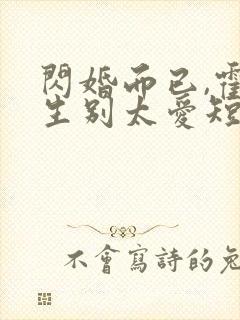 閃婚而已,霍
生别太愛短
不會寫詩的兔